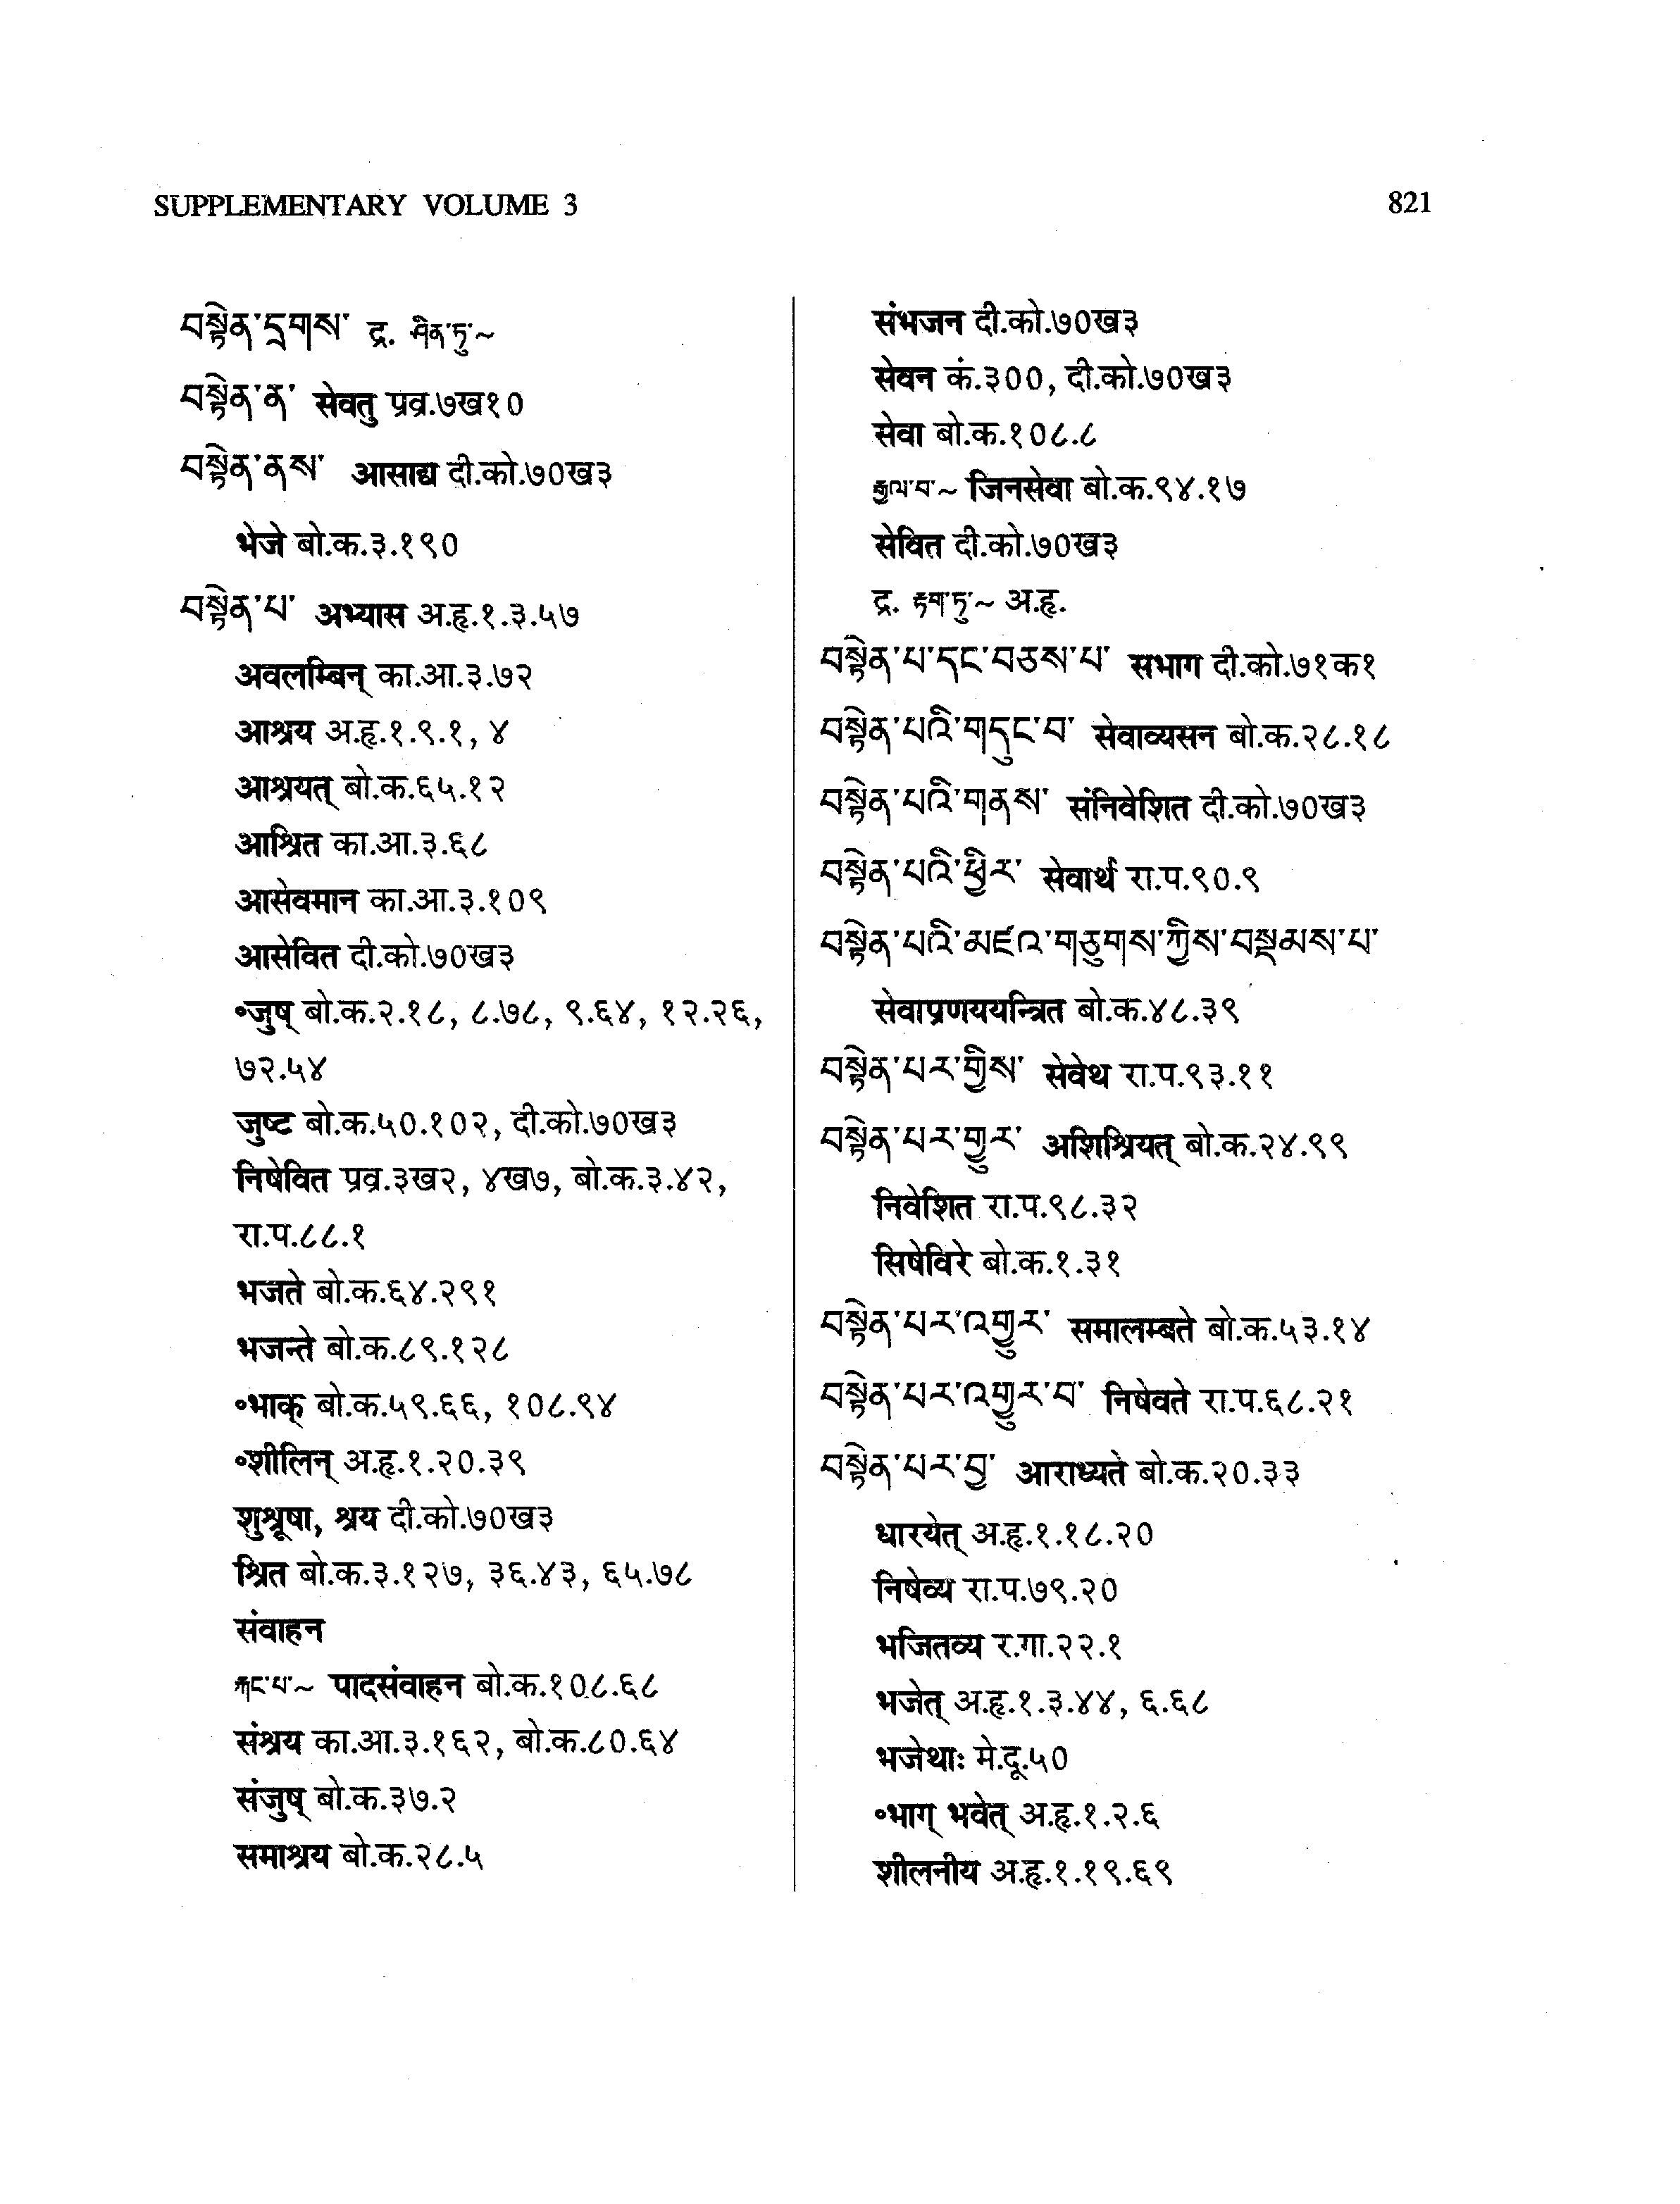 SUPPLEMENTARY VOLUME 3
821
བསྟེན་དྲགས་ द्र. ཤིན་ཏུ་~
བསྟེན་ན་ सेवतु प्रव्र.७ख१०
བསྟེན་ནས་ आसाद्य दी.को.७०ख३
भेजे बो.क.३.१९०
བསྟེན་པ་ अभ्यास अ.हृ.१.३.५७
अवलम्बिन् का.आ.३.७२
आश्रय अ.हृ.१.९.१, ४
आश्रयत् बो.क.६५.१२
आश्रित का.आ.३.६८
आसेवमान का.आ.३.१०९
आसेवित दी.को.७०ख३
॰जुष् बो.क.२.१८, ८.७८, ९.६४, १२.२६,
७२.५४
जुष्ट बो.क.५०.१०२, दी.को.७०ख३
निषेवित प्रव्र.३ख२, ४ख७, बो.क.३.४२,
रा.प.८८.१
भजते बो.क.६४.२९१
भजन्ते बो.क.८९.१२८
॰भाक् बो.क.५९.६६, १०८.९४
॰शीलिन् अ.हृ.१.२०.३९
शुश्रूषा, श्रय दी.को.७०ख३
श्रित बो.क.३.१२७, ३६.४३, ६५.७८
संवाहन
རྐང་པ་~ पादसंवाहन बो.क.१०८.६८
संश्रय का.आ.३.१६२, बो.क.८०.६४
संजुष् बो.क.३७.२
समाश्रय बो.क.२८.५
संभजन दी.को.७०ख३
सेवन कं.३००, दी.को.७०ख३
सेवा बो.क.१०८.८
རྒྱལ་བ་~ जिनसेवा बो.क.९४.१७
सेवित दी.को.७०ख३
द्र. རྟག་ཏུ་~ अ.हृ.
བསྟེན་པ་དང་བཅས་པ་ सभाग दी.को.७१क१
བསྟེན་པའི་གདུང་བ་ सेवाव्यसन बो.क.२८.१८
བསྟེན་པའི་གནས་ संनिवेशित दी.को.७०ख३
བསྟེན་པའི་ཕྱིར་ सेवार्थ रा.प.९०.९
བསྟེན་པའི་མཛའ་གཅུགས་ཀྱིས་བསྡམས་པ་
सेवाप्रणययन्त्रित बो.क.४८.३९
བསྟེན་པར་གྱིས་ सेवेथ रा.प.९३.११
བསྟེན་པར་གྱུར་ अशिश्रियत् बो.क.२४.९९
निवेशित रा.प.९८.३२
सिषेविरे बो.क.१.३१
བསྟེན་པར་འགྱུར་ समालम्बते बो.क.५३.१४
བསྟེན་པར་འགྱུར་བ་ निषेवते रा.प.६८.२१
བསྟེན་པར་བྱ་ आराध्यते बो.क.२०.३३
धारयेत् अ.हृ.१.१८.२०
निषेव्य रा.प.७९.२०
भजितव्य र.गा.२२.१
भजेत् अ.हृ.१.३.४४, ६.६८
भजेथाः मे.दू.५०
॰भाग् भवेत् अ.हृ.१.२.६
शीलनीय अ.हृ.१.१९.६९